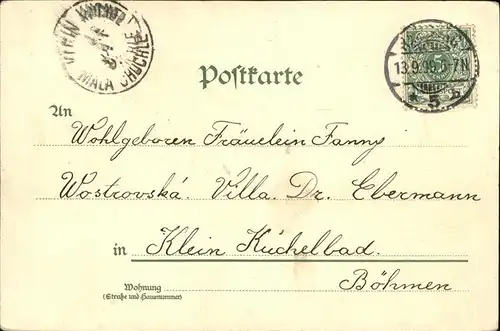 MALÁ CHUCHLE
Postkarte
13.9.99.5-7N
* 5 b.
An
Wohlgeboren Fräulein Fanny
Wostrovská. Villa Dr. Ebermann
in Klein Kuchelbad.
Wohnung
(Straße und Hausnummer)
Böhmen